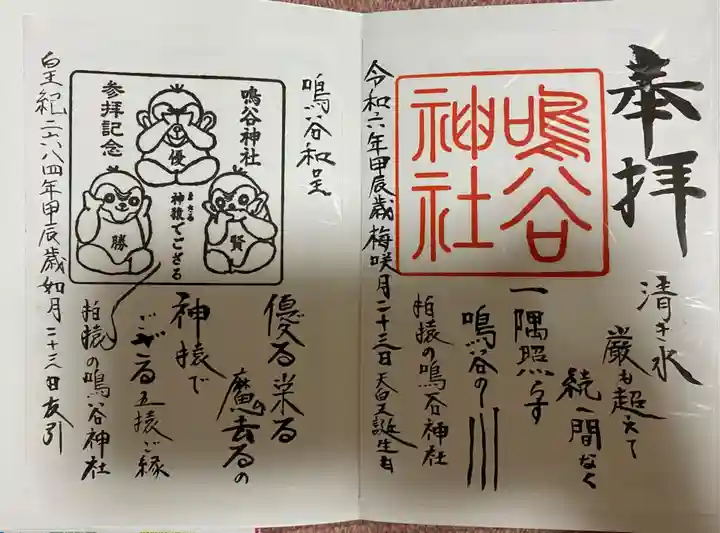 奉拝
清き水
巌も超えて
続く間なく
一隅照らす
鳴谷の川
鳴谷
神社
拍猿の鳴谷神社
令和六年甲辰歳梅咲月二十三日天皇誕生日
鳴谷和呈
鳴谷神社
参拝記念
優
勝
賢
まさる
神猿でござる
優る栄る
魔去るの
神猿で
ござる五猿ご縁
拍猿の鳴谷神社
皇紀二六八四年甲辰歳如月二十三日友引